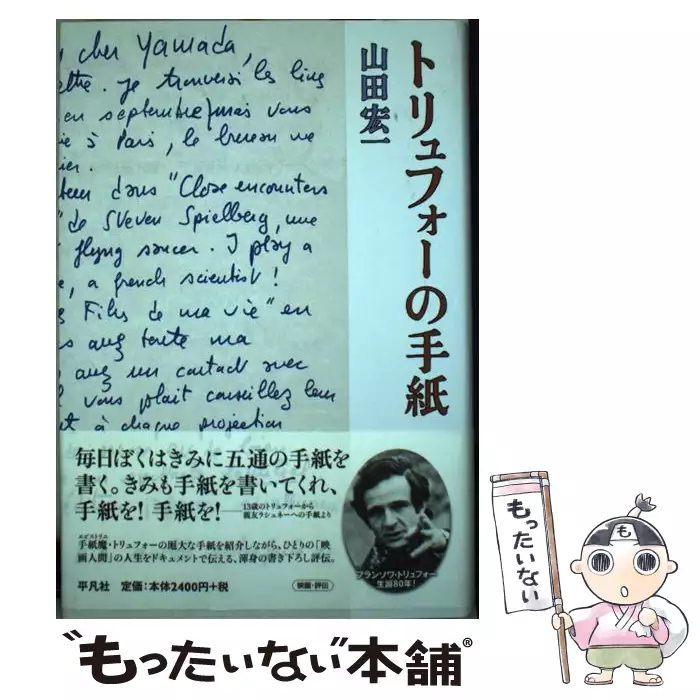 トリュフォーの手紙
山田宏一
cher Yamada,
je trouverai les livres
en septembre mais vous
à Paris, le bureau ne
dans "Close encounters
de Steven Spielberg, une
flying saucer. I play a
, a french scientist!
Films de ma vie" en
ma
un contact avec
vous plait conseillez leur
à chaque projection
毎日ぼくはきみに五通の手紙を
書く。きみも手紙を書いてくれ、
手紙を!手紙を!
13歳のトリュフォーから
親友ラシュネーへの手紙より
エピストリエ
手紙魔・トリュフォーの厖大な手紙を紹介しながら、ひとりの「映
画人間」の人生をドキュメントで伝える、渾身の書き下ろし評伝。
平凡社 定価:本体2400円+税
映画・評伝
フランソワ・トリュフォー
生誕80年!
もったいない
"もったいない本舗®